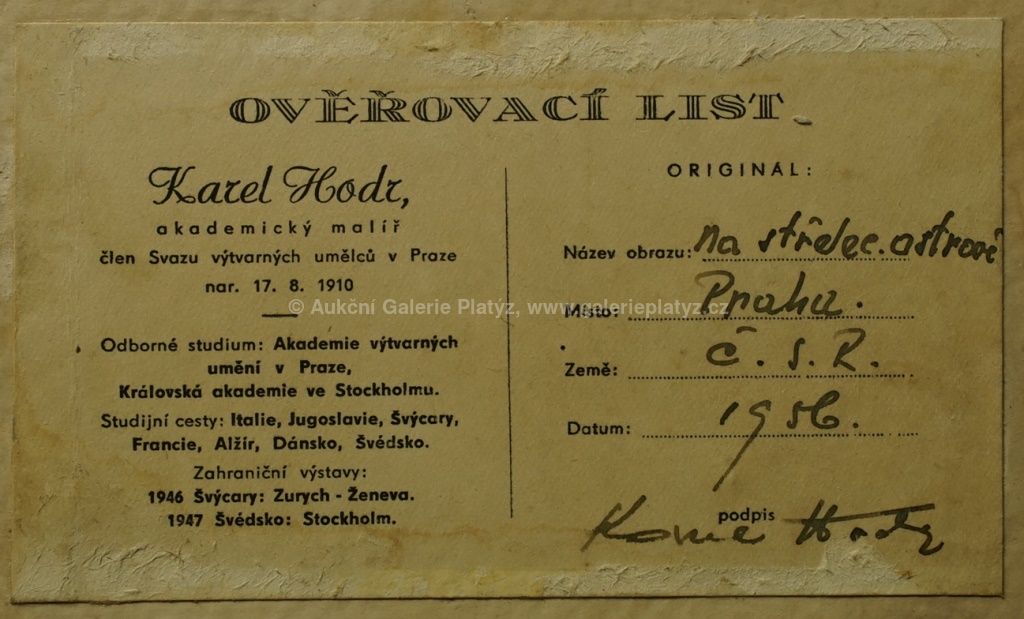 OVĚŘOVACÍ LIST
Karel Hodr,
akademický malíř
člen Svazu výtvarných umělců v Praze
nar. 17. 8. 1910
Odborné studium: Akademie výtvarných
umění v Praze,
Královská akademie ve Stockholmu.
Studijní cesty: Italie, Jugoslavie, Švýcary,
Francie, Alžír, Dánsko, Švédsko.
Zahraniční výstavy:
1946 Švýcary: Zurych - Ženeva.
1947 Švédsko: Stockholm.
ORIGINÁL:
Název obrazu: na střelec. ostrově
Místo: Praha.
Země: Č. S. R.
Datum: 1956.
podpis
Hodr
© Aukční Galerie Platýz, www.galerieplatyz.cz